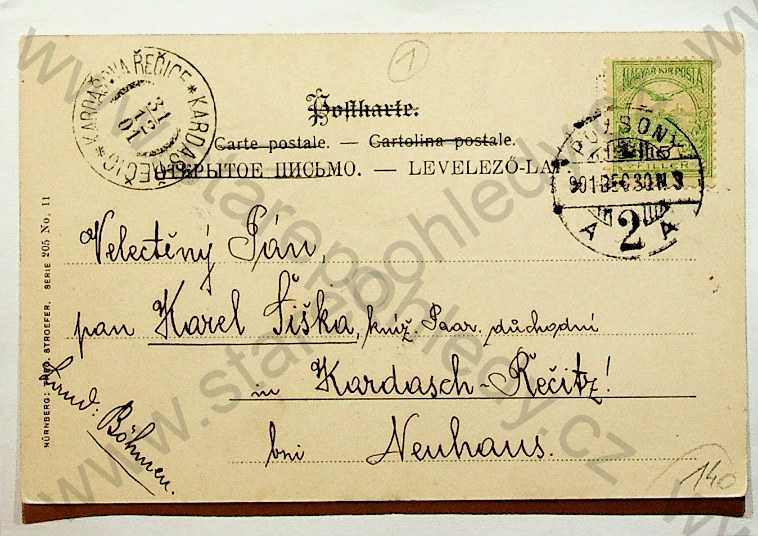 1
Postkarte.
Carte postale. — Cartolina postale.
ОТКРЫТОЕ ПИСЬМО. — LEVELEZŐ-LAP.
KARDAŠOVA ŘEČICE * KARDASCH ŘEČIC *
31
12
01
MAGYAR KIR. POSTA
FILLER
POZSONY
901 DEC 30 N 3
A 2 A
Velectěný Pán,
pan Karel Šiška, kníž. Paar. důchodní
in Kardasch-Řečitz!
bei Neuhaus.
Land: Böhmen.
NÜRNBERG: THEO. STROEFER. SERIE 205 No. 11
140
www.starepohledy.cz